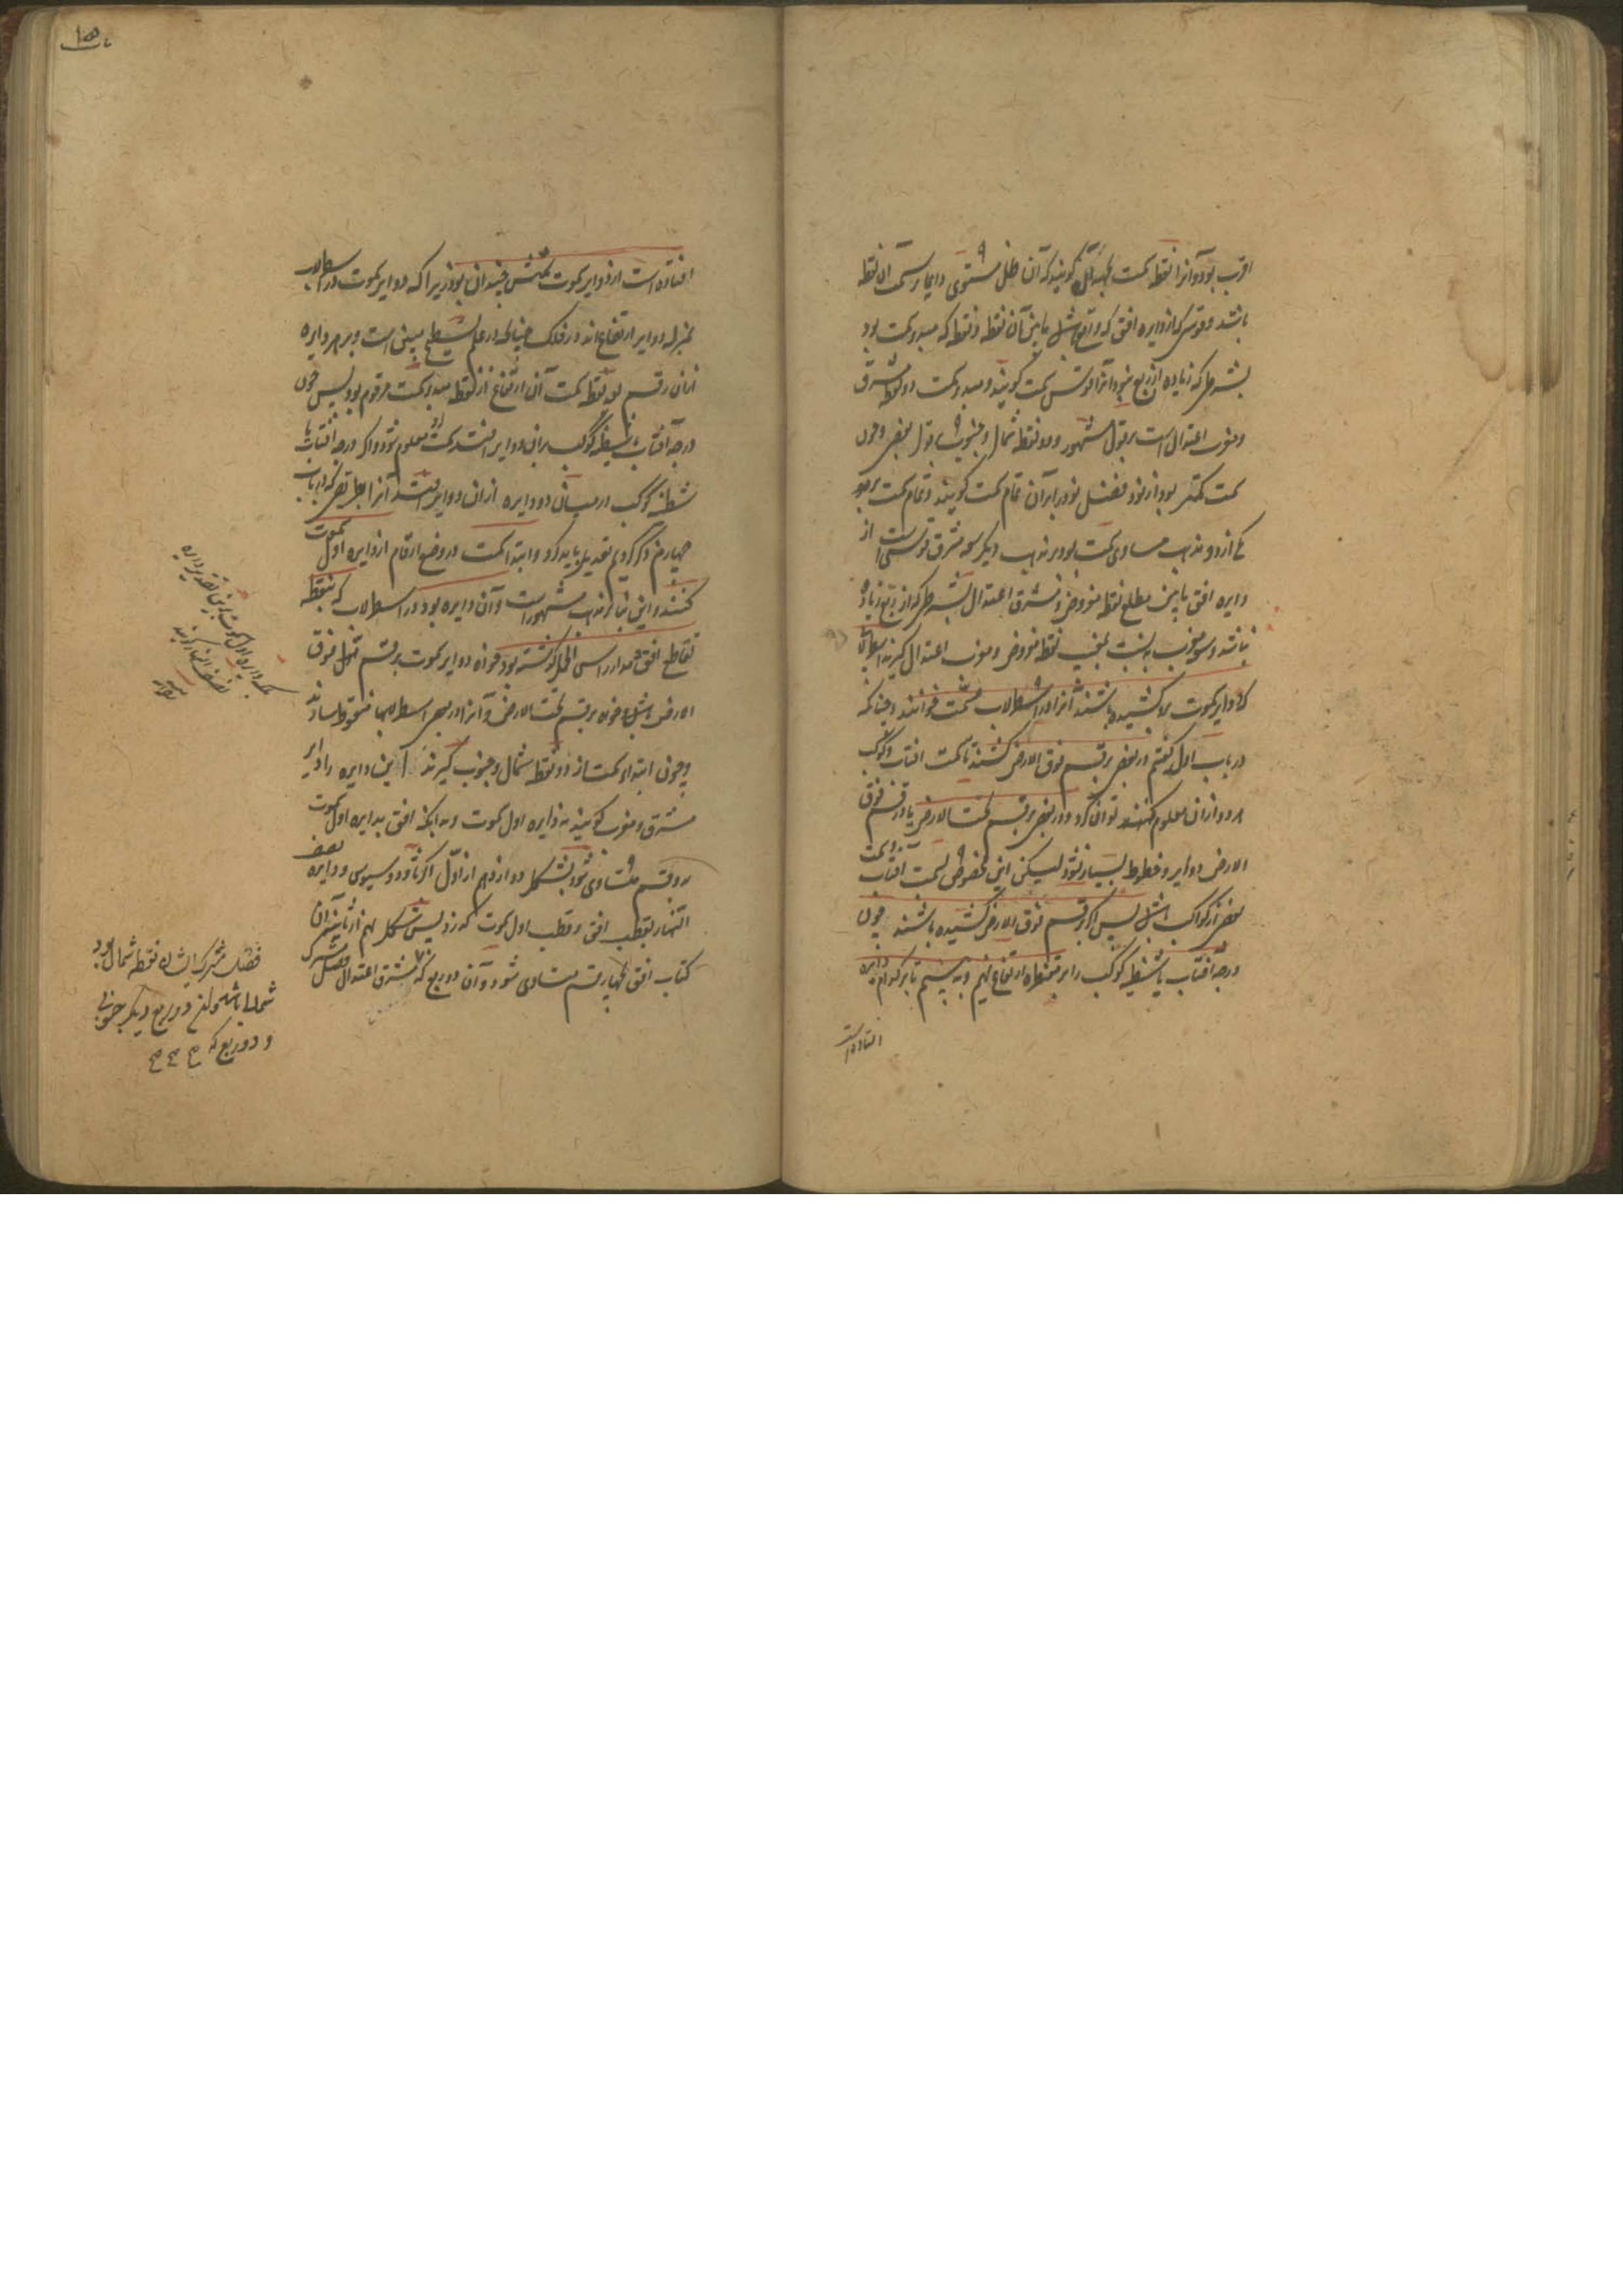 اقرب بود و آنرا نقطه سمت گویند که آن ظل مستوی دایما بر سمت آن نقطه
باشد و قوسی که از دایره افق که واقع باشد مابین آن نقطه و نقطه که مبدء سمت بود
بشرطی که زیاده از ربع نبود آنرا قوس سمت گویند و مبدء سمت دو نقطه مشرق
و مغرب اعتدال است بر قول مشهور و دو نقطه شمال و جنوب بقول بعضی و چون
سمت کمتر بود از نود فضل نود بر آن تمام سمت گویند و تمام سمت بر
یکی از دو مذهب مساوی سمت بود بر مذهب دیگر سعه مشرق قوسی است از
دایره افق مابین مطلع نقطه مفروض و مشرق اعتدال بشرطی که از ربع زیاده
نباشد و سعه مغرب به نسبت بمغیب نقطه مفروض و مغرب اعتدال گیرند اسطرلابی
که دوایر سموت برو کشیده باشند آنرا در اسطرلاب مسمت خوانند و چنانکه
در باب اول گفتیم در بعضی بر قسم فوق الارض کشند تا سمت آفتاب و کوکب
هر دو از آن معلوم کنند توان کرد و در بعضی بر قسم تحت الارض تا در قسم فوق
الارض دوایر و خطوط بسیار نشود لیکن این مخصوص بسمت آفتاب
بعضی از کواکب باشد پس اگر بر قسم فوق الارض کشیده باشند چون
درجه آفتاب یا شظیه کوکب را بر مقنطره ارتفاع نهیم و به بینیم تا بر کدام دایره
افتاده است
افتاده است از دوایر سموت سمتش چندان بود زیرا که دوایر سموت در اسطرلاب
بمنزله دوایر ارتفاع اند در فلک چنانچه در علم تسطیح مبین است و بر هر دایره
از آن رقم بعد نقطه سمت آن ارتفاع از نقطه مبدء سمت مرقوم بود پس چون
درجه آفتاب یا شظیه کوکب بر آن دوایر افتد سمت او معلوم شود و اگر درجه آفتاب یا
شظیه کوکب در میان دو دایره از آن دوایر افتد آنرا بطریقی که در باب
چهارم ذکر کردیم تعدیل باید کرد و ابتدا سمت در وضع ارقام از دایره اول سموت
کنند و این بنا بر مذهب مشهور است و آن دایره بود در اسطرلاب که بنقطه
تقاطع افق و مدار راس الحمل گذشته بود خواه دوایر سموت بر قسم فوق
الارض باشد و خواه بر قسم تحت الارض و آنرا در بعضی اسطرلابها منقوط سازند
و چون ابتداء سمت از دو نقطه شمال و جنوب گیرند این دایره را دایره
مشرق و مغرب گویند نه دایره اول سموت و بدانکه افق بدایره اول سموت
بدو قسم متساوی شود بشکل دوازدهم از اول اکر ثاودوسیوس و دایره نصف
النهار بقطب افق و قطب اول سموت گذرد پس بشکل نهم از ثانیه آن
کتاب افق بچهار قسم متساوی شود و آن دو ربع که مشرق اعتدال فصل مشترک
فصل مشترک ایشان نقطه شمال بود
شمالی باشد و آن دو ربع دیگر جنوبی
و دو ربع که
۱۵